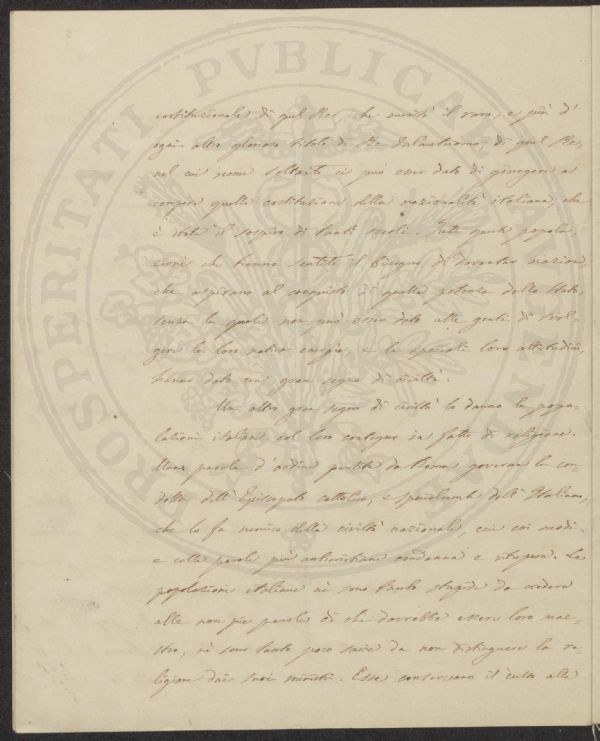 PROSPERITATI PVBLICAE AVGENDAE
costituzionale di quel Re, che meritò il raro, e più d'
ogni altro glorioso titolo di Re Galantuomo; di quel Re,
nel cui nome soltanto ci può esser dato di giungere a
compier quella costituzione della nazionalità italiana, che
è stata il sospiro di tanti secoli. Tutte queste popola-
zioni che hanno sentito il bisogno di diventar nazione
che aspirano al conquisto di quella potenza dello Stato,
senza la quale non può esser dato alle genti di svol-
gere la loro nativa energia, e le speciali loro attitudini,
hanno dato un gran segno di civiltà.
Un altro gran segno di civiltà lo danno le popo-
lazioni italiane col loro contegno in fatto di religione.
Una parola d'ordine partita da Roma governa la con-
dotta dell'Episcopato cattolico, e specialmente dell'Italiano,
che lo fa nemico della civiltà nazionale, cui coi modi
e colle parole più anticristiane condanna e vitupera. Le
popolazioni italiane nè sono tanto stupide da credere
alle non pie parole di chi dovrebbe essere loro mae-
stro, nè sono tanto poco savie da non distinguere la re-
ligione dai suoi ministri. Esse conservano il culto alla